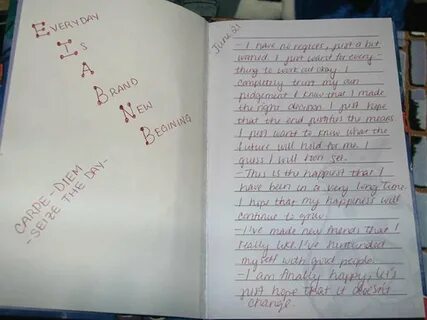 EVERYDAY
IS
A
BRAND
NEW
BEGINING
CARPE-DIEM
-SEIZE THE DAY-
June 21
- I have no regrets, just a bit
worried. I just want for every-
thing to work out okay. I
completely trust my own
judgement. I know that I made
the right decision. I just hope
that the end justifies the means
I just want to know what the
future will hold for me. I
guess I will soon see.
- This is the happiest that I
have been in a very long time
I hope that my happiness will
continue to grow.
- I've made new friends that I
really like. I've surrounded
myself with good people.
- I am finally happy, let's
just hope that it doesn't
change.